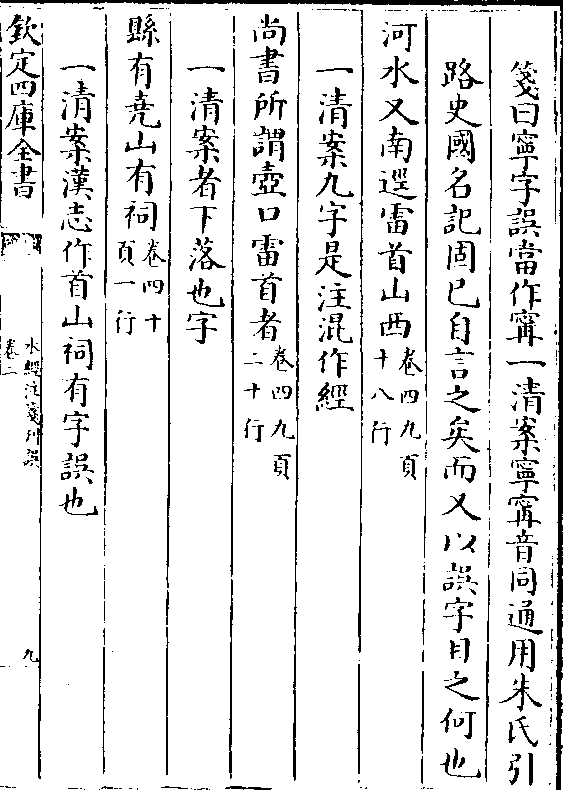 箋曰寧字誤當作甯一清案寧甯音同通用朱氏引
路史國名記固已自言之矣而又以誤字目之何也
河水又南逕雷首山西卷四九頁十八行
一清案九字是注混作經
尚書所謂壺口雷首者卷四九頁二十行
一清案者下落也字
縣有堯山有祠卷四十頁一行
一清案漢志作首山祠有字誤也
欽定四庫全書
水經注箋刊誤
卷二
九